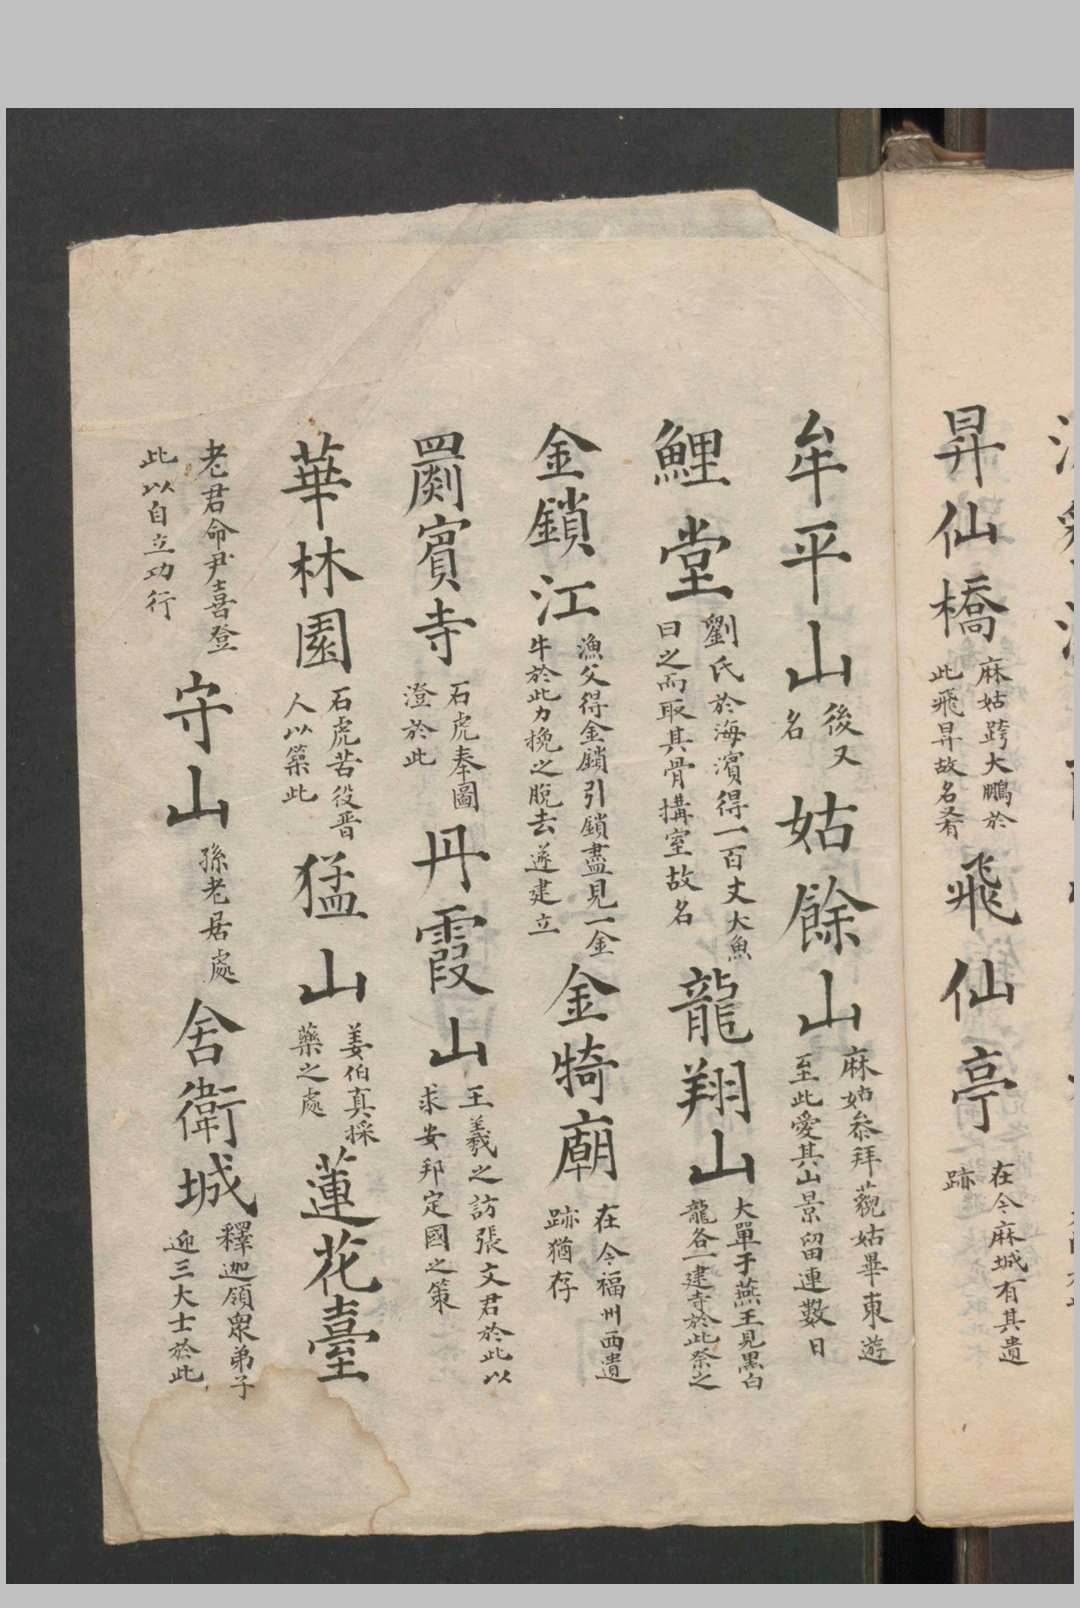 昇仙橋 麻姑跨大鵬於此飛昇故名 飛仙亭 在今麻城有其遺跡
牟平山 後又名 姑餘山 麻姑叅拜藐姑畢東遊至此愛其山景留連數日
鯉堂 劉氏於海濱得一百丈大魚曰之而取其骨搆室故名 龍翔山 大單于燕王見黑白龍各一建寺於此祭之
金鎖江 漁父得金鎖引鎖盡見一金牛於此力挽之脫去遂建立 金犄廟 在今福州西遺跡猶存
罽賓寺 石虎奉圖澄於此 丹霞山 王羲之訪張文君於此以求安邦定國之策
華林園 石虎苦役晋人以築此 猛山 姜伯真採藥之處 蓮花臺
老君命尹喜登此以自立功行 守山 孫老居處 舍衛城 釋迦領衆弟子迎三大士於此